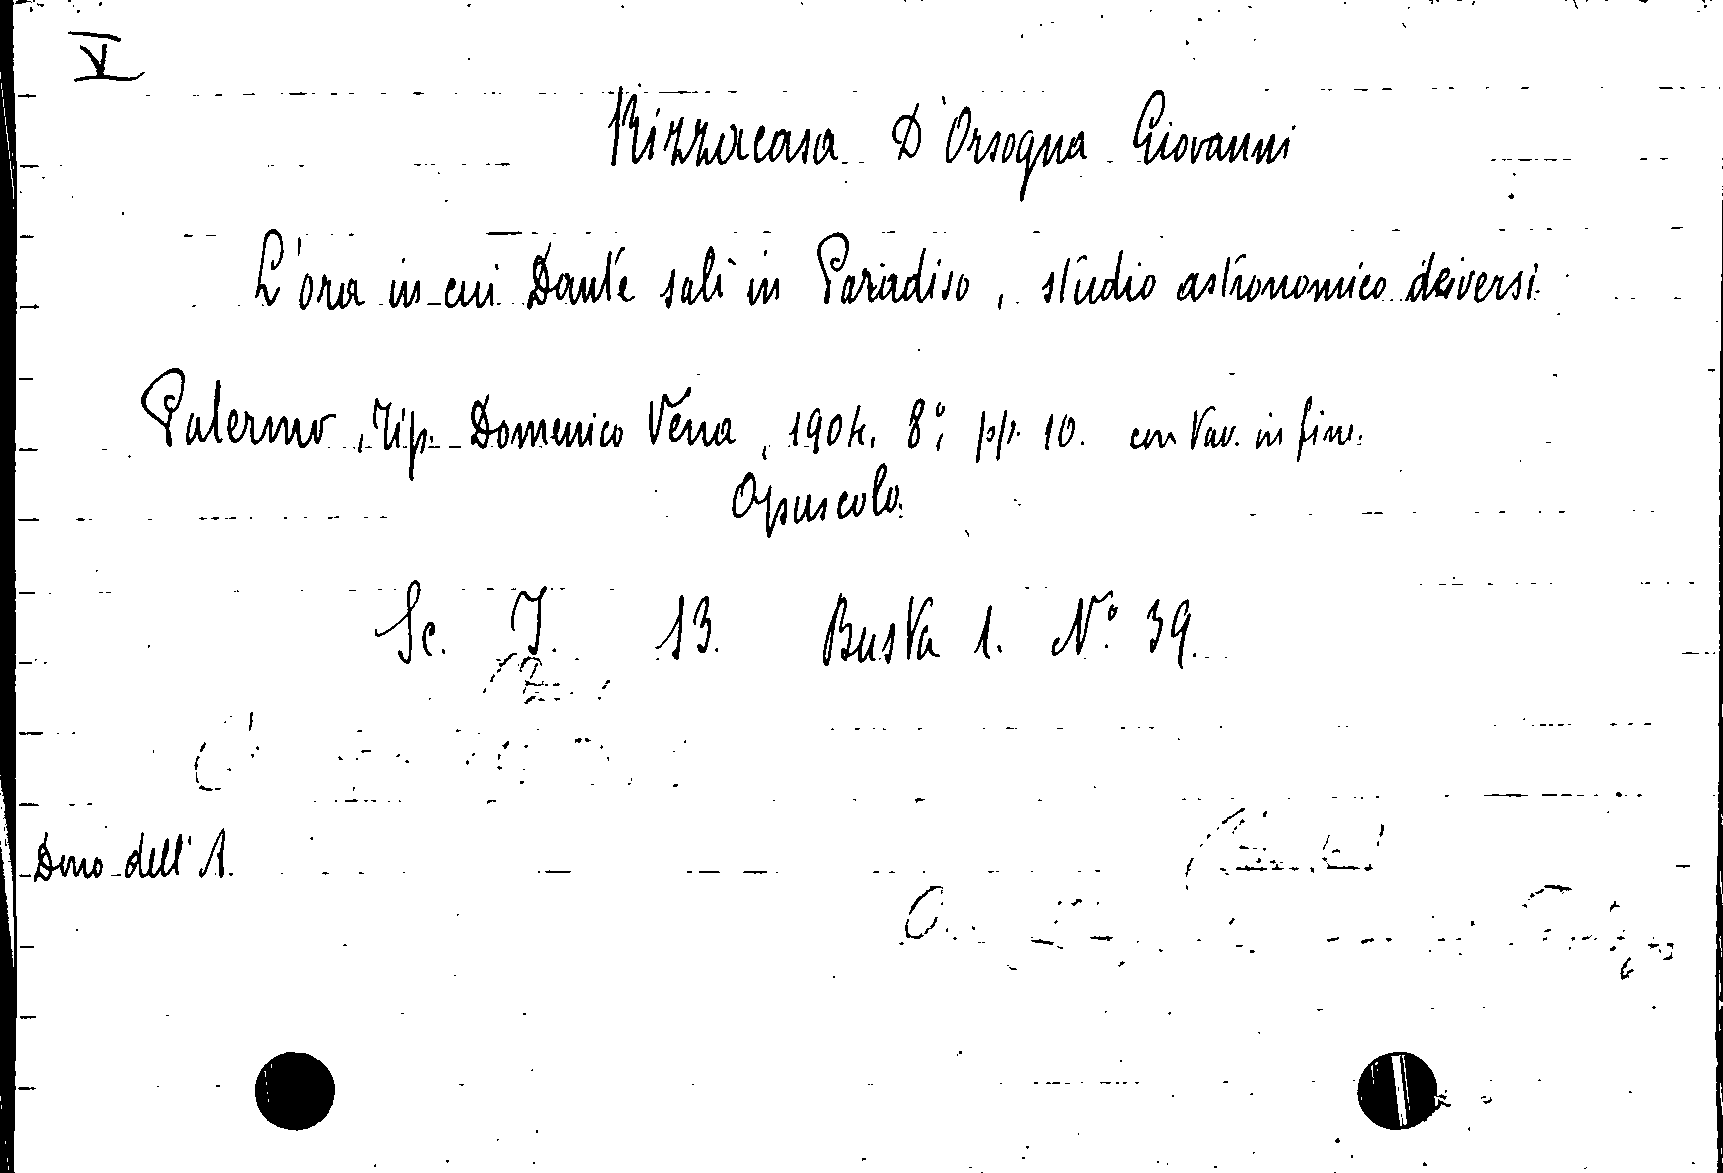 V
Rizzacasa D'Orsogna Giovanni
L'ora in cui Dante salì in Paradiso, studio astronomico dei versi.
Palermo, Tip. Domenico Vena, 1904. 8°, pp. 10. con tav. in fine.
Opuscolo.
Sc. I. 13. Busta 1. N.° 39.
Dono dell'A.